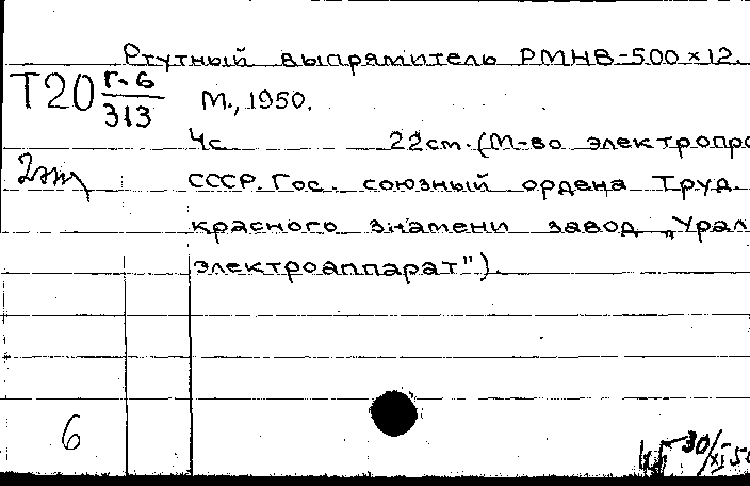 Ртутный выпрямитель РМНВ-500×12.
Т20 Г-6/313
М., 1950.
4с 22см. (М-во электропро
2 экз
СССР. Гос. союзный ордена Труд.
красного знамени завод „Урал
электроаппарат").
6
30/XI 50